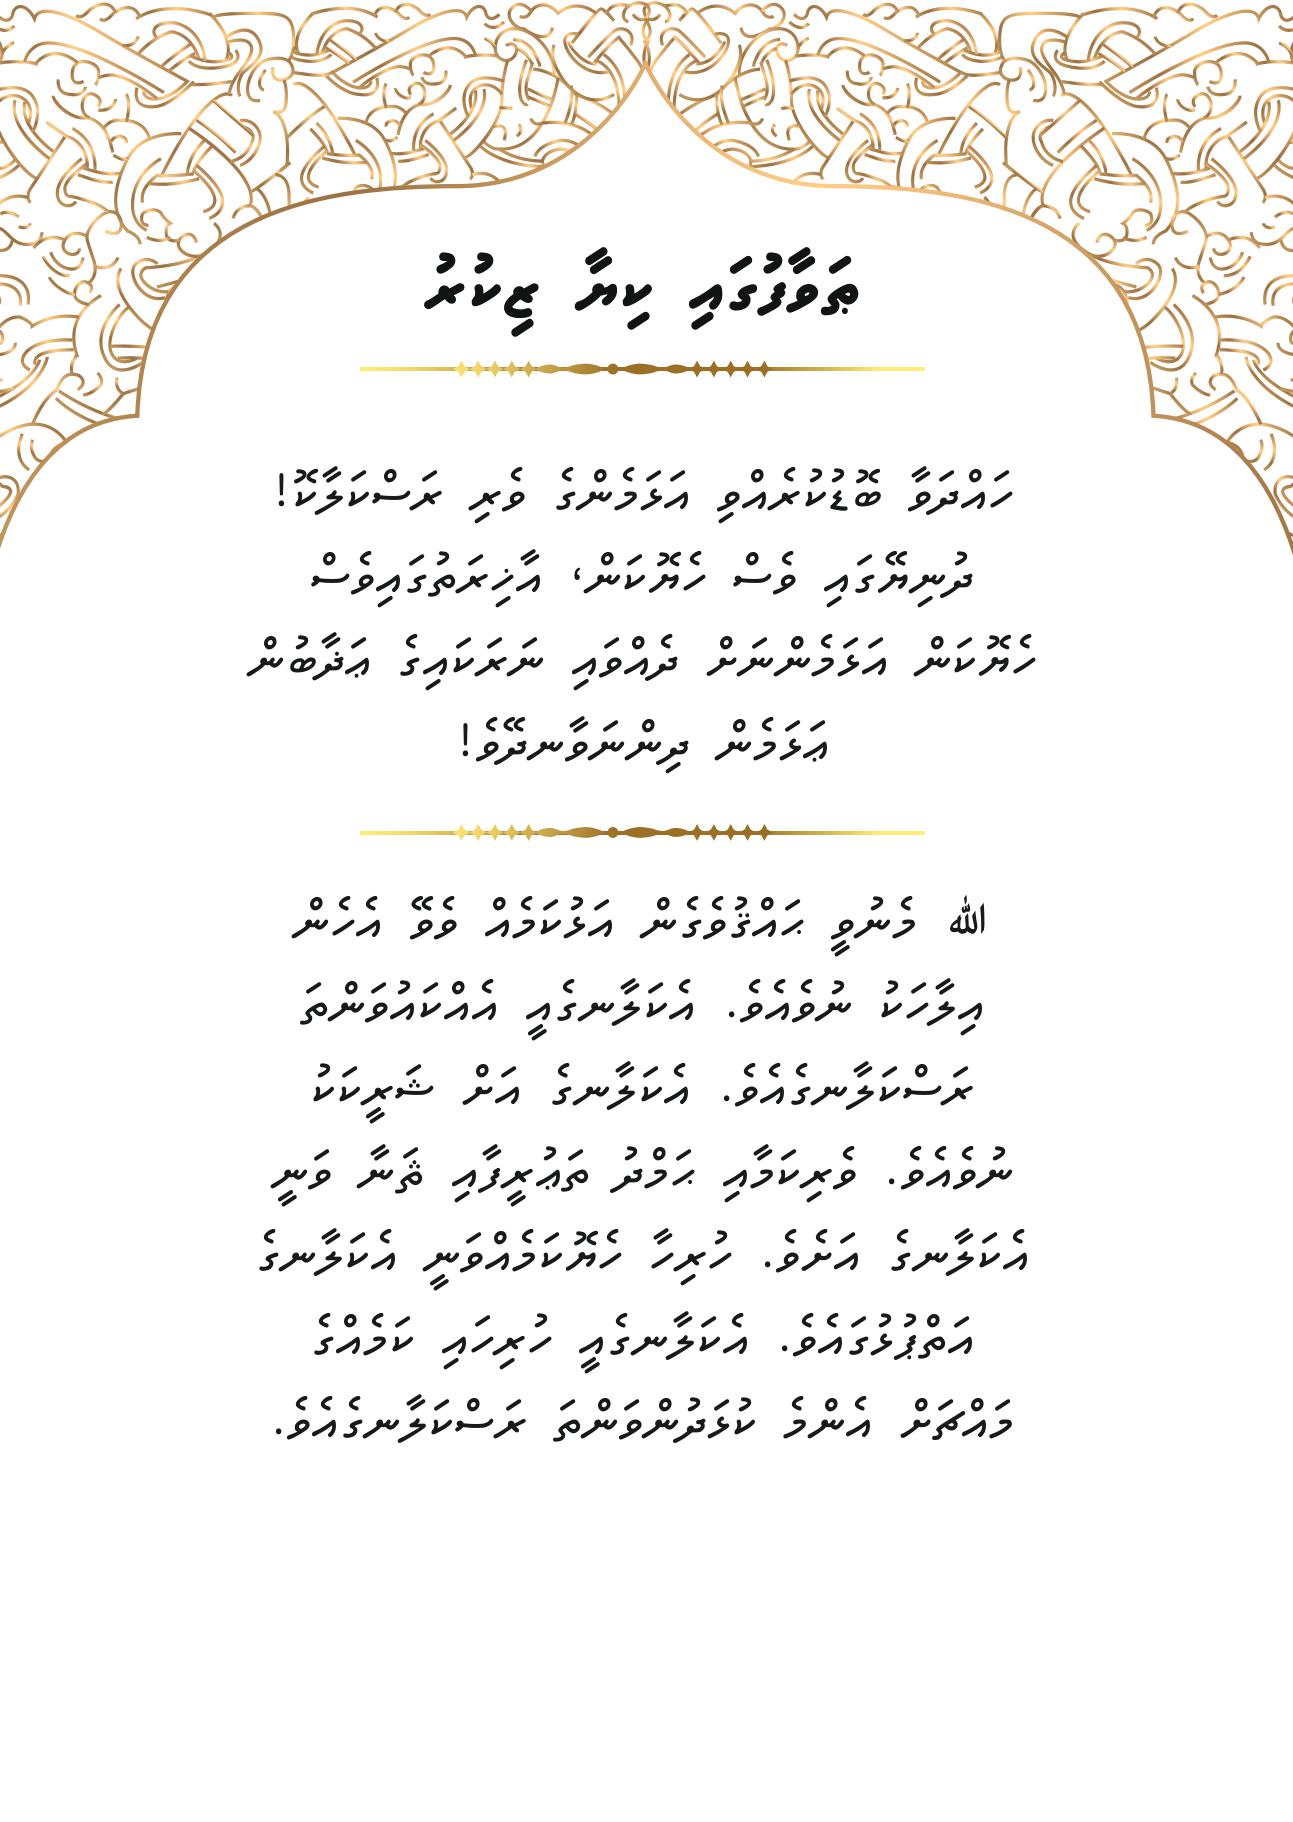 ޠަވާފުގައި ކިޔާ ޒިކުރު
ހައްދަވާ ބޮޑުކުރެއްވި އަޅަމެންގެ ވެރި ރަސްކަލާކޮ!
ދުނިޔޭގައި ވެސް ހެޔޮކަން، އާޚިރަތުގައިވެސް
ހެޔޮކަން އަޅަމެންނަށް ދެއްވައި ނަރަކައިގެ ޢަޛާބުން
ޢަޅަމެން ދިންނަވާނދޭވެ!
ﷲ މެނުވީ ޙައްޤުވެގެން އަޅުކަމެއް ވެވޭ އެހެން
އިލާހަކު ނުވެއެވެ. އެކަލާނގެއީ އެއްކައުވަންތަ
ރަސްކަލާނގެއެވެ. އެކަލާނގެ އަށް ޝަރީކަކު
ނުވެއެވެ. ވެރިކަމާއި ޙަމްދު ތަޢުރީފާއި ޘަނާ ވަނީ
އެކަލާނގެ އަށެވެ. ހުރިހާ ހެޔޮކަމެއްވަނީ އެކަލާނގެ
އަތްޕުޅުގައެވެ. އެކަލާނގެއީ ހުރިހައި ކަމެއްގެ
މައްޗަށް އެންމެ ކުޅަދުންވަންތަ ރަސްކަލާނގެއެވެ.